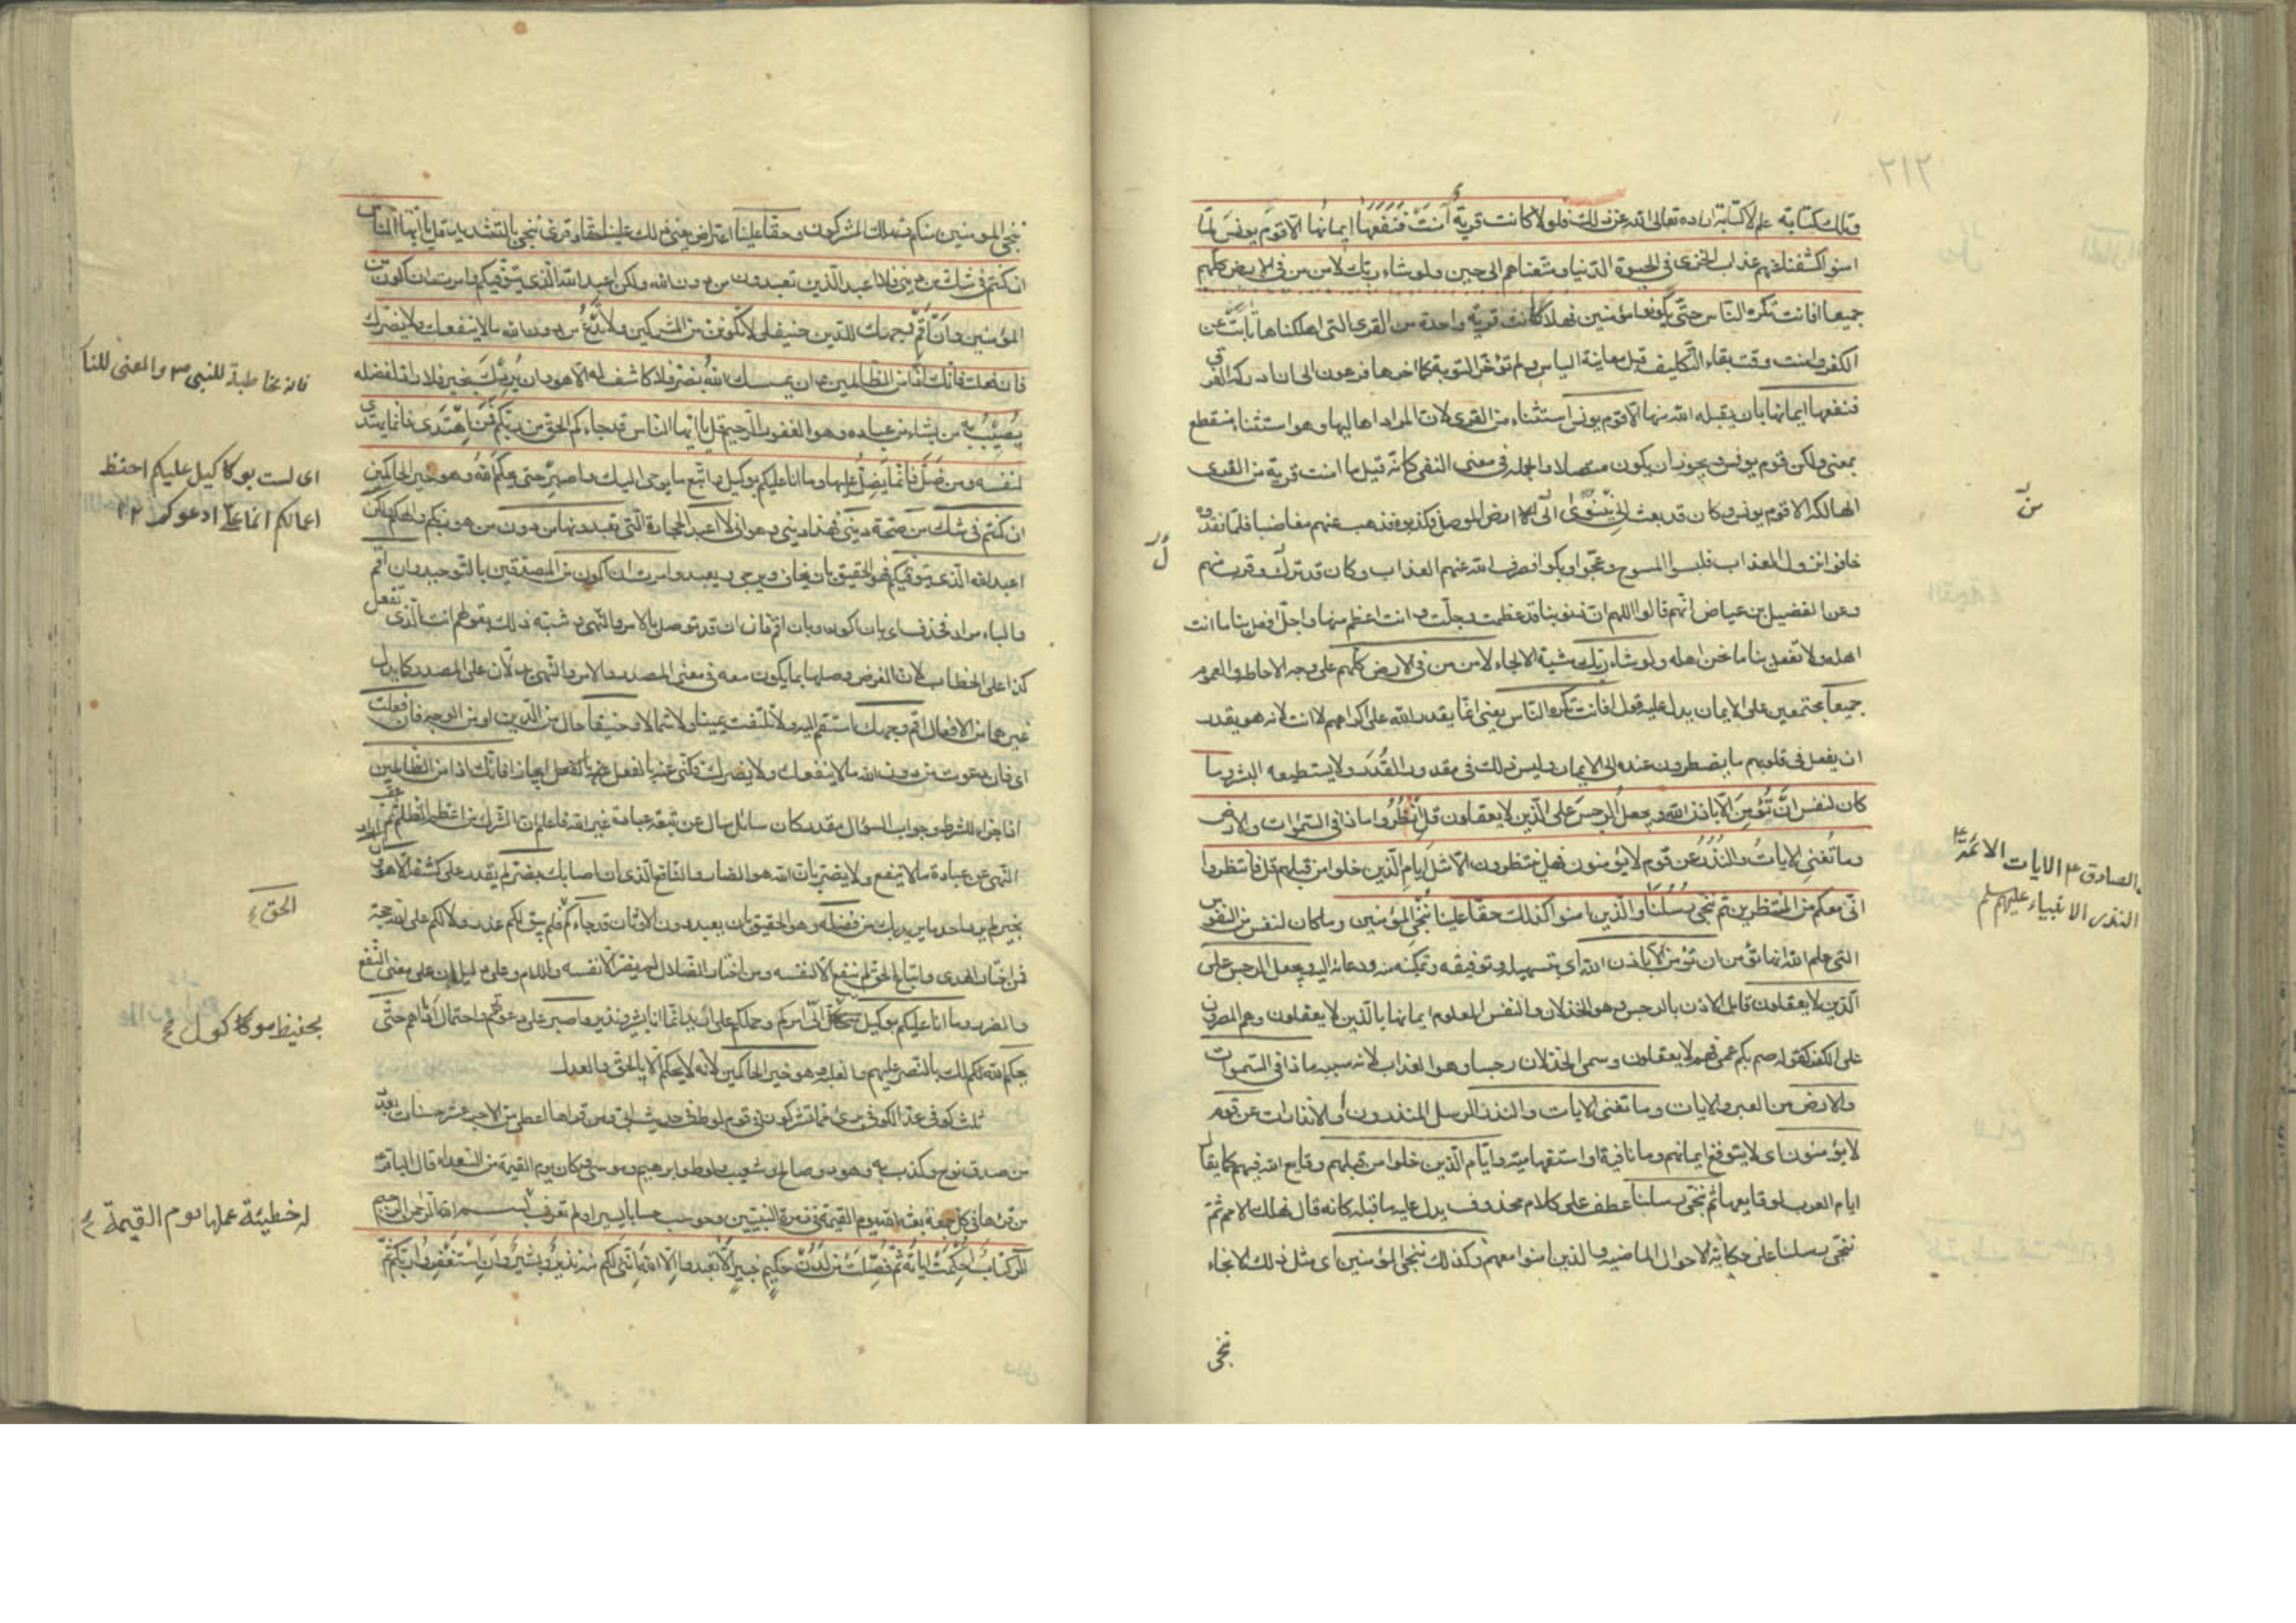 وتلك كتابة علم لا كتابة اراده تعالى الله عن ذلك فلولا كانت قرية آمنت فنفعها ايمانها الا قوم يونس لما
امنوا كشفنا عنهم عذاب الخزى فى الحيوة الدنيا ومتعناهم الى حين ولو شاء ربك لامن من فى الارض كلهم
جميعا افانت تكره الناس حتى يكونوا مؤمنين فهلا كانت قرية واحدة من القرى التى اهلكناها تابت عن
الكفر وامنت وقت بقاء التكليف قبل معاينة الباس ولم تؤخر التوبة كما اخرها فرعون الى ان ادركه الغرق
فنفعها ايمانها بان يقبله الله منها الا قوم يونس استثناء من القرى لان المراد اهاليها وهو استثناء منقطع
بمعنى ولكن قوم يونس ويجوز ان يكون متصلا والجملة فى معنى النفى كانه قيل ما امنت قرية من القرى
الهالكة الا قوم يونس وكان قد بعث الى نينوى الى الارض الموصل فكذبوه فذهب عنهم مغاضبا فلما فقدوه
خافوا نزول العذاب فلبسوا المسوح وعجوا وبكوا فصرف الله عنهم العذاب وكان قد نزل وقرب منهم
وعن الفضيل بن عياض انهم قالوا اللهم ان ذنوبنا قد عظمت وجلت وانت اعظم منها واجل افعل بنا ما انت
اهله ولا تفعل بنا ما نحن اهله ولو شاء ربك مشية الالجاء لامن من فى الارض كلهم على وجه الاحاطة والعموم
جميعا مجتمعين على الايمان يدل عليه قوله افانت تكره الناس يعنى انما يقدر الله على اكراههم لا انت لانه هو يقدر
ان يفعل فى قلوبهم ما يضطرون عنده الى الايمان وليس ذلك فى مقدور القدر ولا يستطيعه البشر وما
كان لنفس ان تؤمن الا باذن الله ويجعل الرجس على الذين لا يعقلون قل انظروا ماذا فى السموات والارض
وما تغنى الايات والنذر عن قوم لا يؤمنون فهل ينتظرون الا مثل ايام الذين خلوا من قبلهم قل فانتظروا
انى معكم من المنتظرين ثم ننجى رسلنا والذين امنوا كذلك حقا علينا ننجى المؤمنين وما كان لنفس من النفوس
التى علم الله انها تؤمن ان تؤمن الا باذن الله اى بتسهيله وتوفيقه وتمكينه منه ودعائه اليه ويجعل الرجس على
الذين لا يعقلون قابل الاذن بالرجس وهو الخذلان والنفس المعلوم ايمانها بالذين لا يعقلون وهم المصرون
على الكفر كقوله صم بكم عمى فهم لا يعقلون وسمى الخذلان رجسا وهو العذاب لانه سببه ماذا فى السموات
والارض من العبر والايات وما تغنى الايات والنذر الرسل المنذرون او الانذارات عن قوم
لا يؤمنون اى لا يتوقع ايمانهم وما نافية او استفهامية وايام الذين خلوا من قبلهم وقايع الله فيهم كما يقال
ايام العرب لوقايعها ثم ننجى رسلنا عطف على كلام محذوف يدل عليه ما قبله كانه قال نهلك الامم ثم
ننجى رسلنا على حكاية الاحوال الماضية والذين امنوا معهم وكذلك ننجى المؤمنين اى مثل ذلك الانجاء
ننجى
الصادق ع الايات الائمة
النذر الانبياء عليهم السلم
ننجى المؤمنين منكم ونهلك المشركين وحقا علينا اعتراض يعنى ذلك علينا حقا وقرئ ننجى بالتشديد قل يا ايها الناس
ان كنتم فى شك من دينى فلا اعبد الذين تعبدون من دون الله ولكن اعبد الله الذى يتوفيكم وامرت ان اكون من
المؤمنين وان اقم وجهك للدين حنيفا ولا تكونن من المشركين ولا تدع من دون الله ما لا ينفعك ولا يضرك
فان فعلت فانك اذا من الظالمين وان يمسسك الله بضر فلا كاشف له الا هو وان يردك بخير فلا راد لفضله
يصيب به من يشاء من عباده وهو الغفور الرحيم قل يا ايها الناس قد جاءكم الحق من ربكم فمن اهتدى فانما يهتدى
لنفسه ومن ضل فانما يضل عليها وما انا عليكم بوكيل واتبع ما يوحى اليك واصبر حتى يحكم الله وهو خير الحاكمين
ان كنتم فى شك من صحة دينى فهذا دينى وهو انى لا اعبد الحجارة التى تعبدونها من دون من هو ربكم والهكم ولكن
اعبد الله الذى يتوفيكم فهو الحقيق بان يخاف ويرجى ويعبد وامرت ان اكون من المصدقين بالتوحيد وان اقم
والباء مراد فحذف اى بان اكون وبان اقم فان ان قد توصل بالامر والنهى وشبه ذلك بقولهم انت الذى تفعل
كذا على الخطاب لان الغرض وصلها بما يكون معه فى معنى المصدر والامر والنهى يدلان على المصدر كما يدل
غيرهما من الافعال اقم وجهك استقم اليه ولا تلتفت يمينا ولا شمالا وحنيفا حال من الدين او من الوجه فان فعلت
اى فان دعوت من دون الله ما لا ينفعك ولا يضرك فكنى عنه بالفعل ايجازا فانك اذا من الظالمين
اذا جزاء للشرط وجواب السؤال مقدر كان سائلا سال عن تبعة عبادة غير الله فاعلم ان الشرك من اعظم الظلم ثم عقب
النهى عن عبادة ما لا ينفع ولا يضر بان الله هو الضار والنافع الذى ان اصابك بضر لم يقدر على كشفه الا هو وان اراد
بخير لم يرد احد ما يريد بك من فضله وهو الحقيق بان يعبد دون الاوثان قد جاءكم فلم يبق لكم عذر ولا لكم على الله حجة
فمن اختار الهدى واتباع الحق لم ينفع الا لنفسه ومن اختار الضلال لم يضر الا نفسه واللام وعلى دليلان على معنى النفع
والضر وما انا عليكم بوكيل موكل الى امركم وحملكم على ما اريد انما انا بشير ونذير واصبر على دعوتهم واحتمال اذاهم حتى
يحكم الله لكم بالنصر عليهم والغلبة وهو خير الحاكمين لانه لا يحكم الا بالحق والعدل
من صدق نوح وكذب به وهود وصالح وشعيب ولوط وابرهيم وموسى وكان يوم القيمة من السعداء قال الباقر
من قرءها فى كل جمعة بعثه الله يوم القيمة فى زمرة النبيين وحوسب حسابا يسيرا ولم تعرف بسم الله الرحمن الرحيم
الر كتاب احكمت اياته ثم فصلت من لدن حكيم خبير الا تعبدوا الا الله اننى لكم منه نذير وبشير وان استغفروا ربكم ثم
فانه مخاطبة للنبى ص والمعنى للناس
اى لست بوكيل عليكم احفظ
اعمالكم انما على ادعوكم
الحق
بحفيظ موكول
له خطيئة عملها يوم القيمة